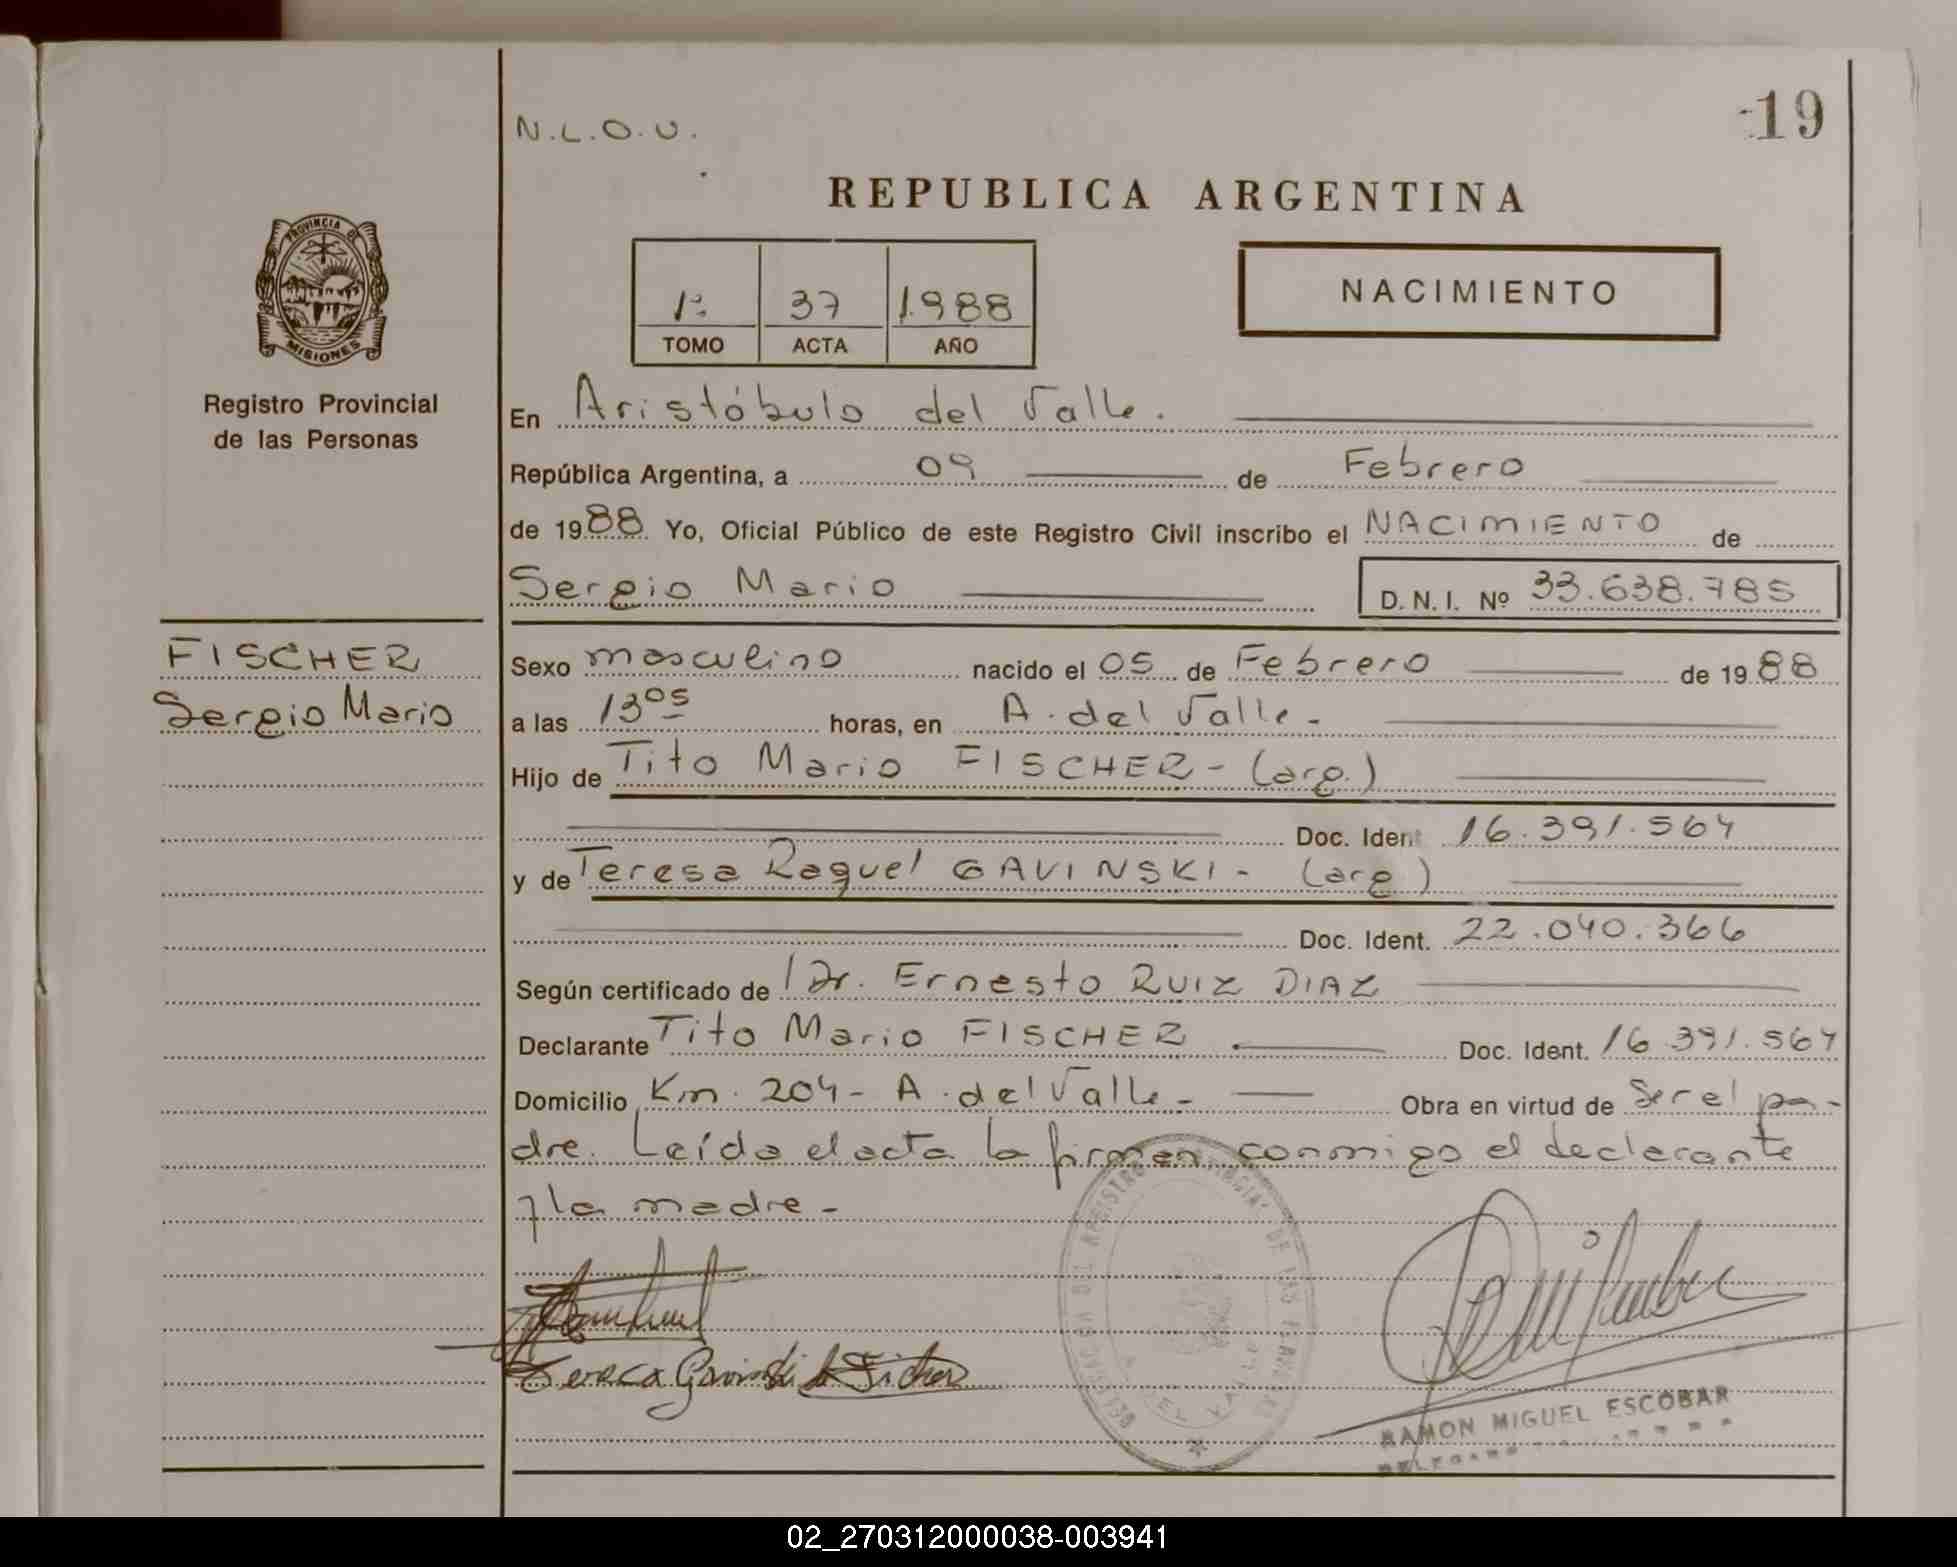 N.L.O.U.
19
REPUBLICA ARGENTINA
PROVINCIA DE
MISIONES
Registro Provincial
de las Personas
1º 37 1988
TOMO ACTA AÑO
NACIMIENTO
En Aristóbulo del Valle.
República Argentina, a 09 de Febrero
de 1988 Yo, Oficial Público de este Registro Civil inscribo el NACIMIENTO de
Sergio Mario D.N.I. Nº 33.638.785
FISCHER
Sergio Mario
Sexo masculino nacido el 05 de Febrero de 1988
a las 13 05 horas, en A. del Valle -
Hijo de Tito Mario FISCHER - (arg.)
Doc. Ident 16.391.564
y de Teresa Raquel GAVINSKI - (arg)
Doc. Ident. 22.040.366
Según certificado de Dr. Ernesto RUIZ DIAZ
Declarante Tito Mario FISCHER Doc. Ident. 16.391.564
Domicilio Km. 204 - A. del Valle - Obra en virtud de Ser el pa-
dre. Leída el acta la firman conmigo el declarante
y la madre -
RAMON MIGUEL ESCOBAR
02_270312000038-003941